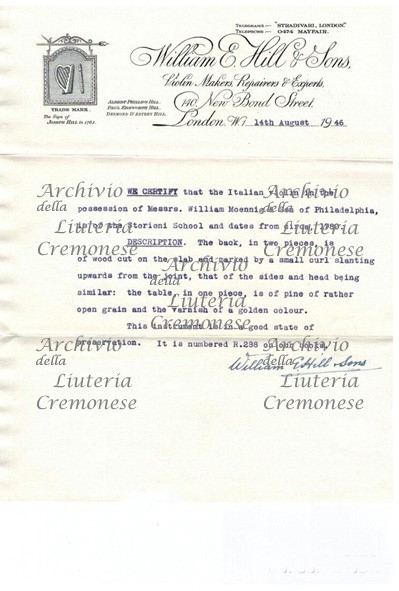 TELEGRAMS — "STRADIVARI, LONDON."
TELEPHONE — 0474 MAYFAIR.
William E. Hill & Sons,
Violin Makers, Repairers & Experts,
140, New Bond Street,
London, W1 14th August 1946
ALBERT PHILLIPS HILL.
PAUL EBSWORTH HILL.
DESMOND D'ARTREY HILL.
TRADE MARK.
The Sign of
JOSEPH HILL in 1762.
WE CERTIFY that the Italian violin in the
possession of Messrs. William Moennig & Son of Philadelphia,
is of the Storioni School and dates from circa 1780.
DESCRIPTION. The back, in two pieces, is
of wood cut on the slab and marked by a small curl slanting
upwards from the joint, that of the sides and head being
similar: the table, in one piece, is of pine of rather
open grain and the varnish of a golden colour.
This instrument is in a good state of
preservation. It is numbered R.298 on our
William E. Hill & Sons
Archivio
della
Liuteria
Cremonese
Archivio
della
Liuteria
Cremonese
Archivio
della
Liuteria
Cremonese
Archivio
della
Liuteria
Cremonese
Archivio
della
Liuteria
Cremonese